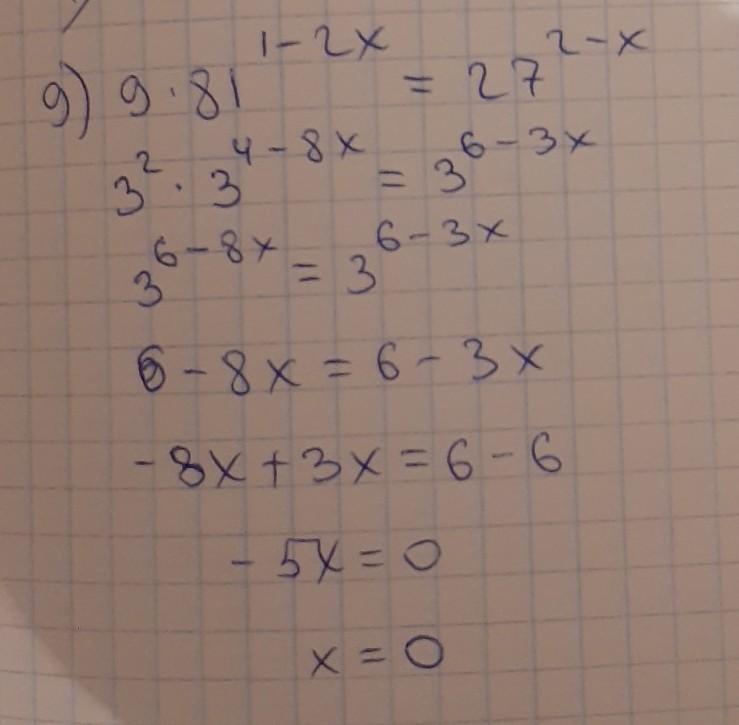 9) 9 · 81^{1-2x} = 27^{2-x}
3^2 · 3^{4-8x} = 3^{6-3x}
3^{6-8x} = 3^{6-3x}
6 - 8x = 6 - 3x
-8x + 3x = 6 - 6
-5x = 0
x = 0